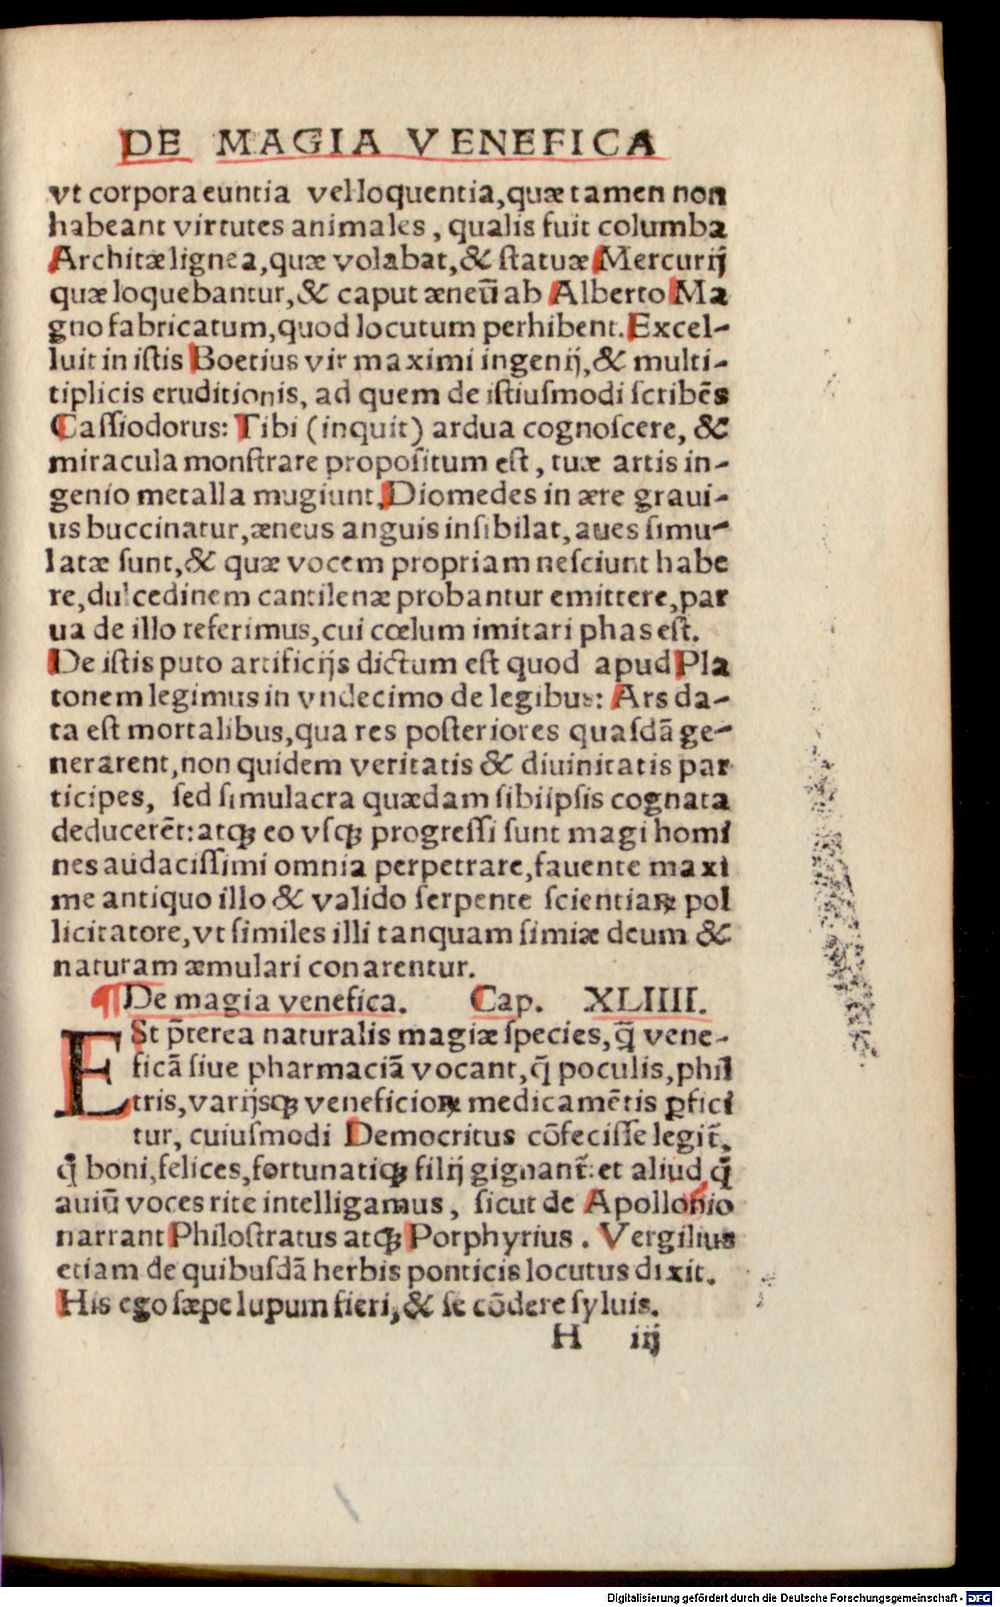 DE MAGIA VENEFICA
vt corpora euntia vel loquentia, quæ tamen non
habeant virtutes animales, qualis fuit columba
Architæ lignea, quæ volabat, & ſtatuæ Mercurij
quæ loquebantur, & caput æneū ab Alberto Ma
gno fabricatum, quod locutum perhibent. Excel-
luit in iſtis Boetius vir maximi ingenij, & multi-
tiplicis eruditionis, ad quem de iſtiuſmodi ſcribēs
Caſſiodorus: Tibi (inquit) ardua cognoſcere, &
miracula monſtrare propoſitum eſt, tuæ artis in-
genio metalla mugiunt, Diomedes in ære graui-
us buccinatur, æneus anguis inſibilat, aues ſimu-
latæ ſunt, & quæ vocem propriam neſciunt habe
re, dulcedinem cantilenæ probantur emittere, par
ua de illo referimus, cui cœlum imitari phas eſt.
De iſtis puto artificijs dictum eſt quod apud Pla
tonem legimus in vndecimo de legibus: Ars da-
ta eſt mortalibus, qua res poſteriores quaſdā ge-
nerarent, non quidem veritatis & diuinitatis par
ticipes, ſed ſimulacra quædam ſibiipſis cognata
deducerēt: atqꝫ eo vſqꝫ progreſſi ſunt magi homi
nes audaciſſimi omnia perpetrare, fauente maxi
me antiquo illo & valido ſerpente ſcientiaꝝ pol
licitatore, vt ſimiles illi tanquam ſimiæ deum &
naturam æmulari conarentur.
¶ De magia venefica. Cap. XLIIII.
ESt p̄terea naturalis magiæ ſpecies, q̄ vene-
ficā ſiue pharmaciā vocant, q̄ poculis, phil
tris, varijsqꝫ veneficioꝝ medicamētis ꝑfici
tur, cuiuſmodi Democritus cōfeciſſe legit̄,
q̊ boni, felices, fortunatiqꝫ filij gignant̄: et aliud, q̊
auiū voces rite intelligamus, ſicut de Apollonio
narrant Philoſtratus atqꝫ Porphyrius. Vergilius
etiam de quibuſdā herbis ponticis locutus dixit.
His ego ſæpe lupum fieri, & ſe cōdere ſyluis.
H iij
Digitalisierung gefördert durch die Deutsche Forschungsgemeinschaft - DFG